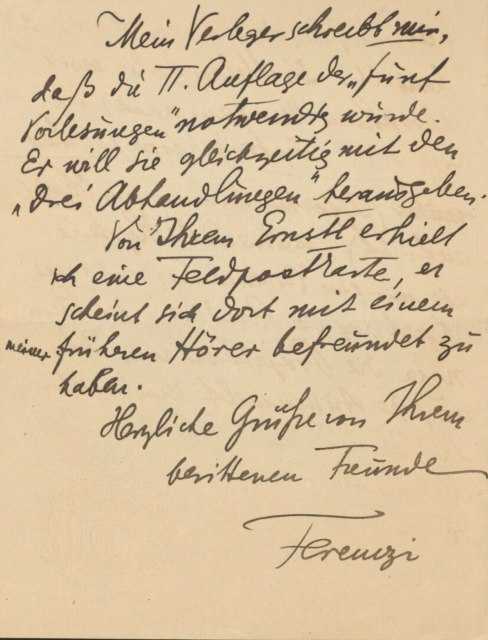 Mein Verleger schreibt mir,
daß die II. Auflage der „fünf
Vorlesungen" notwendig würde.
Er will sie gleichzeitig mit den
„drei Abhandlungen" herausgeben.
Von Ihrem Ernstl erhielt
ich eine Feldpostkarte, er
scheint sich dort mit einem
meiner früheren Hörer befreundet zu
haben.
Herzliche Grüße von Ihrem
berittenen Freunde
Ferenczi